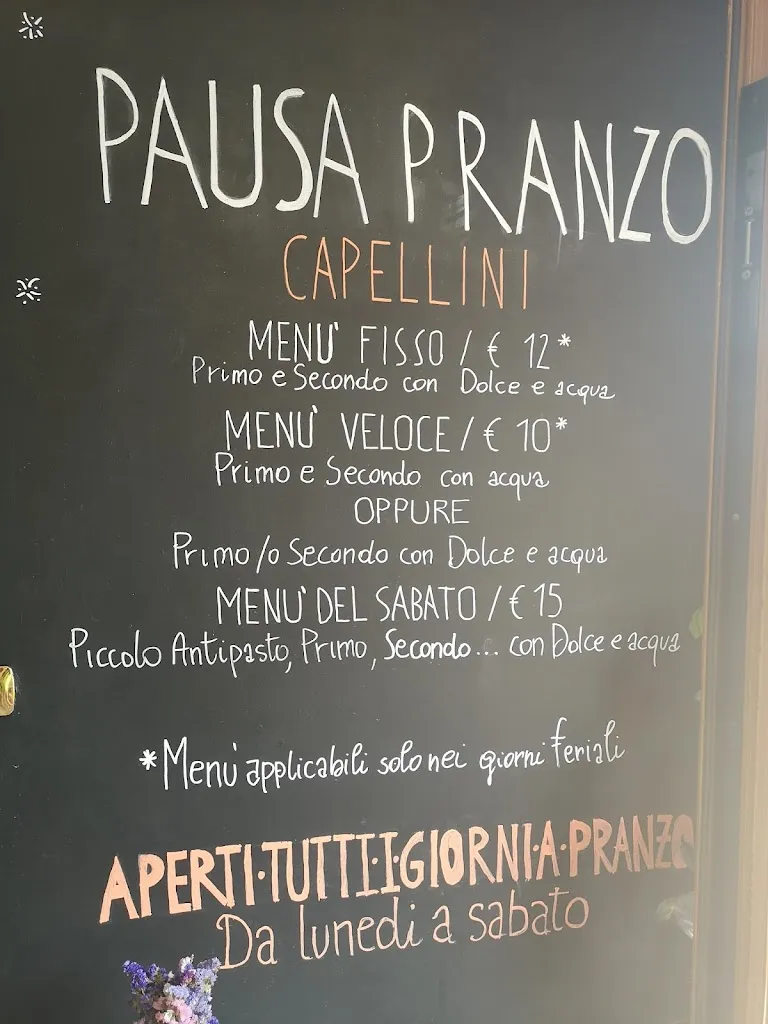 PAUSA PRANZO
CAPELLINI
MENU' FISSO / € 12*
Primo e Secondo con Dolce e acqua
MENU' VELOCE / € 10*
Primo e Secondo con acqua
OPPURE
Primo /o Secondo con Dolce e acqua
MENU' DEL SABATO / € 15
Piccolo Antipasto, Primo, Secondo... con Dolce e acqua
*Menu' applicabili solo nei giorni feriali
APERTI·TUTTI·I·GIORNI·A·PRANZO
Da lunedì a sabato